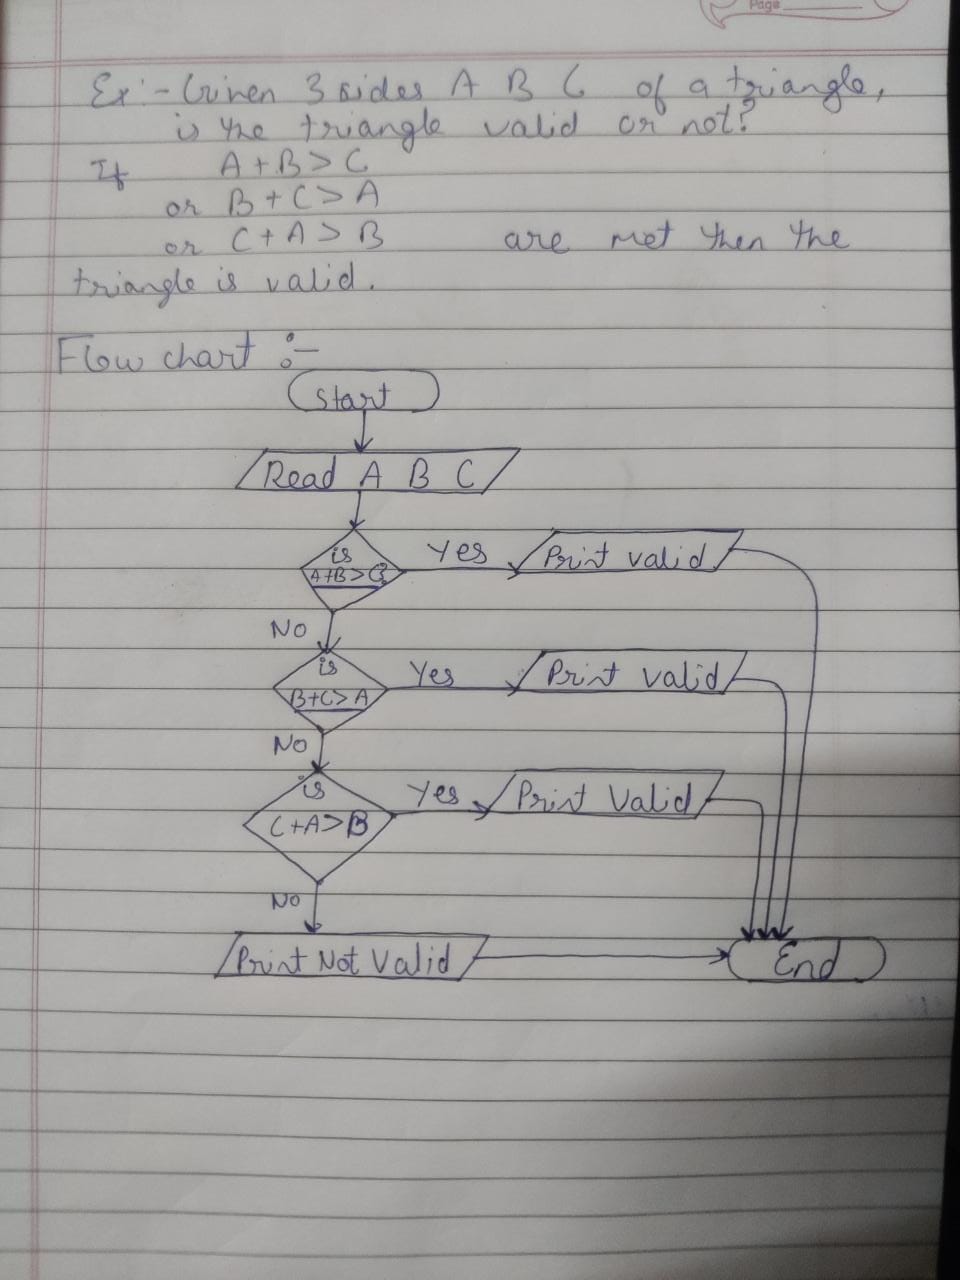 Page
Ex:- Given 3 sides A B C of a triangle,
is the triangle valid or not?
If A+B>C
or B+C>A
or C+A>B are met then the
triangle is valid.
Flow chart :-
Start
Read A B C
is
A+B>C?
Yes
Print valid
No
is
B+C>A
Yes
Print valid
No
is
C+A>B
Yes
Print Valid
No
Print Not Valid
End